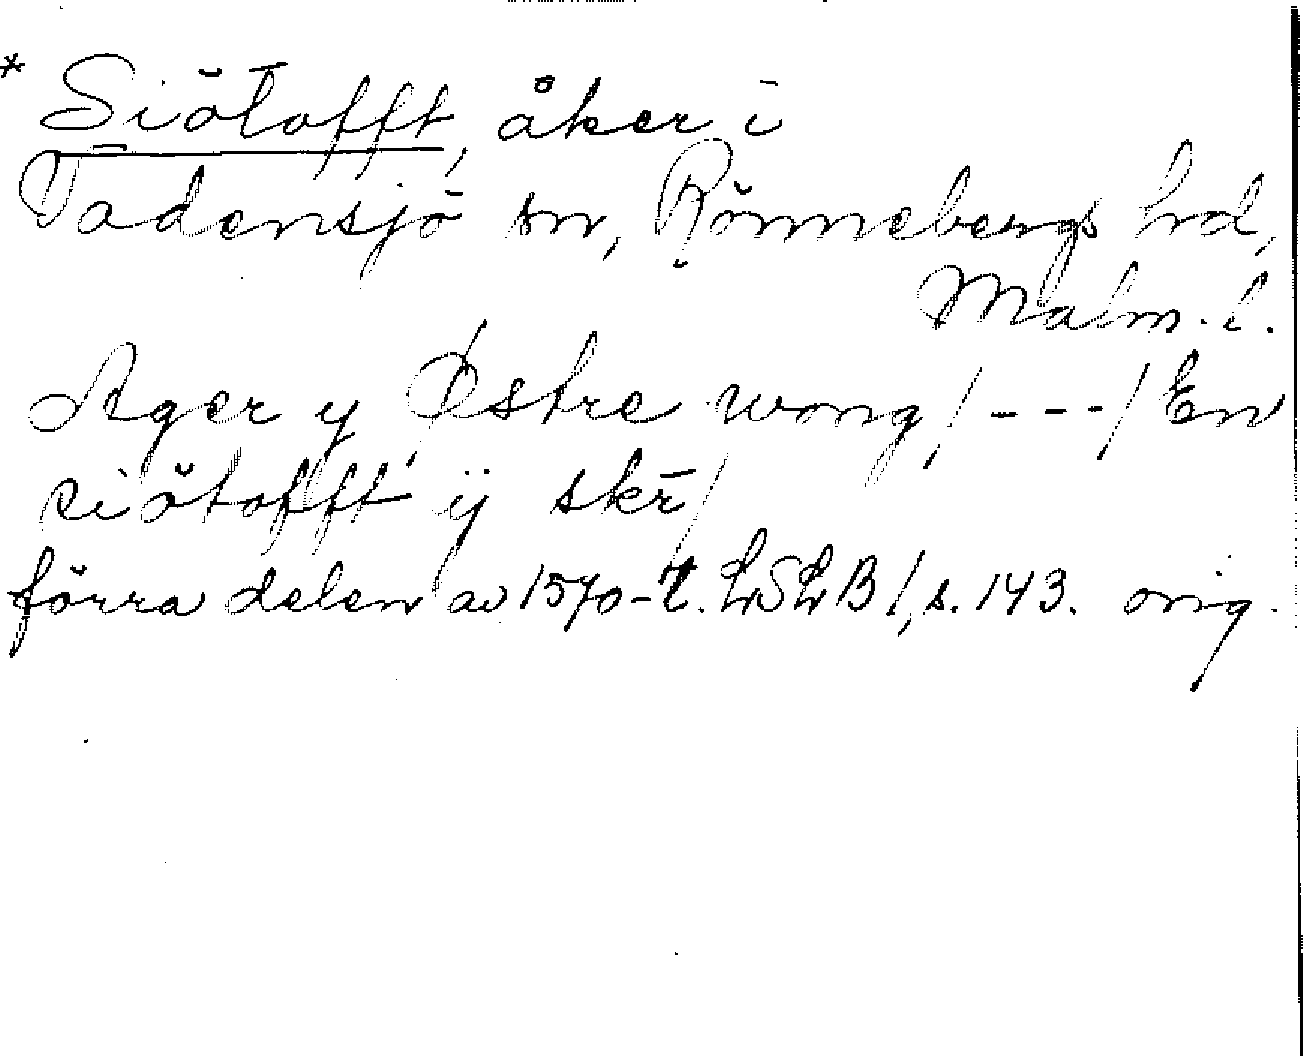 * Siötofft, åker i
Tådensjö sn, Rönnebergs hd,
Malm. l.
Ager y Østre wong /---/ En
siötofft ÿ skr̄/
förra delen av 1570-t. LSLB 1, s. 143. orig.